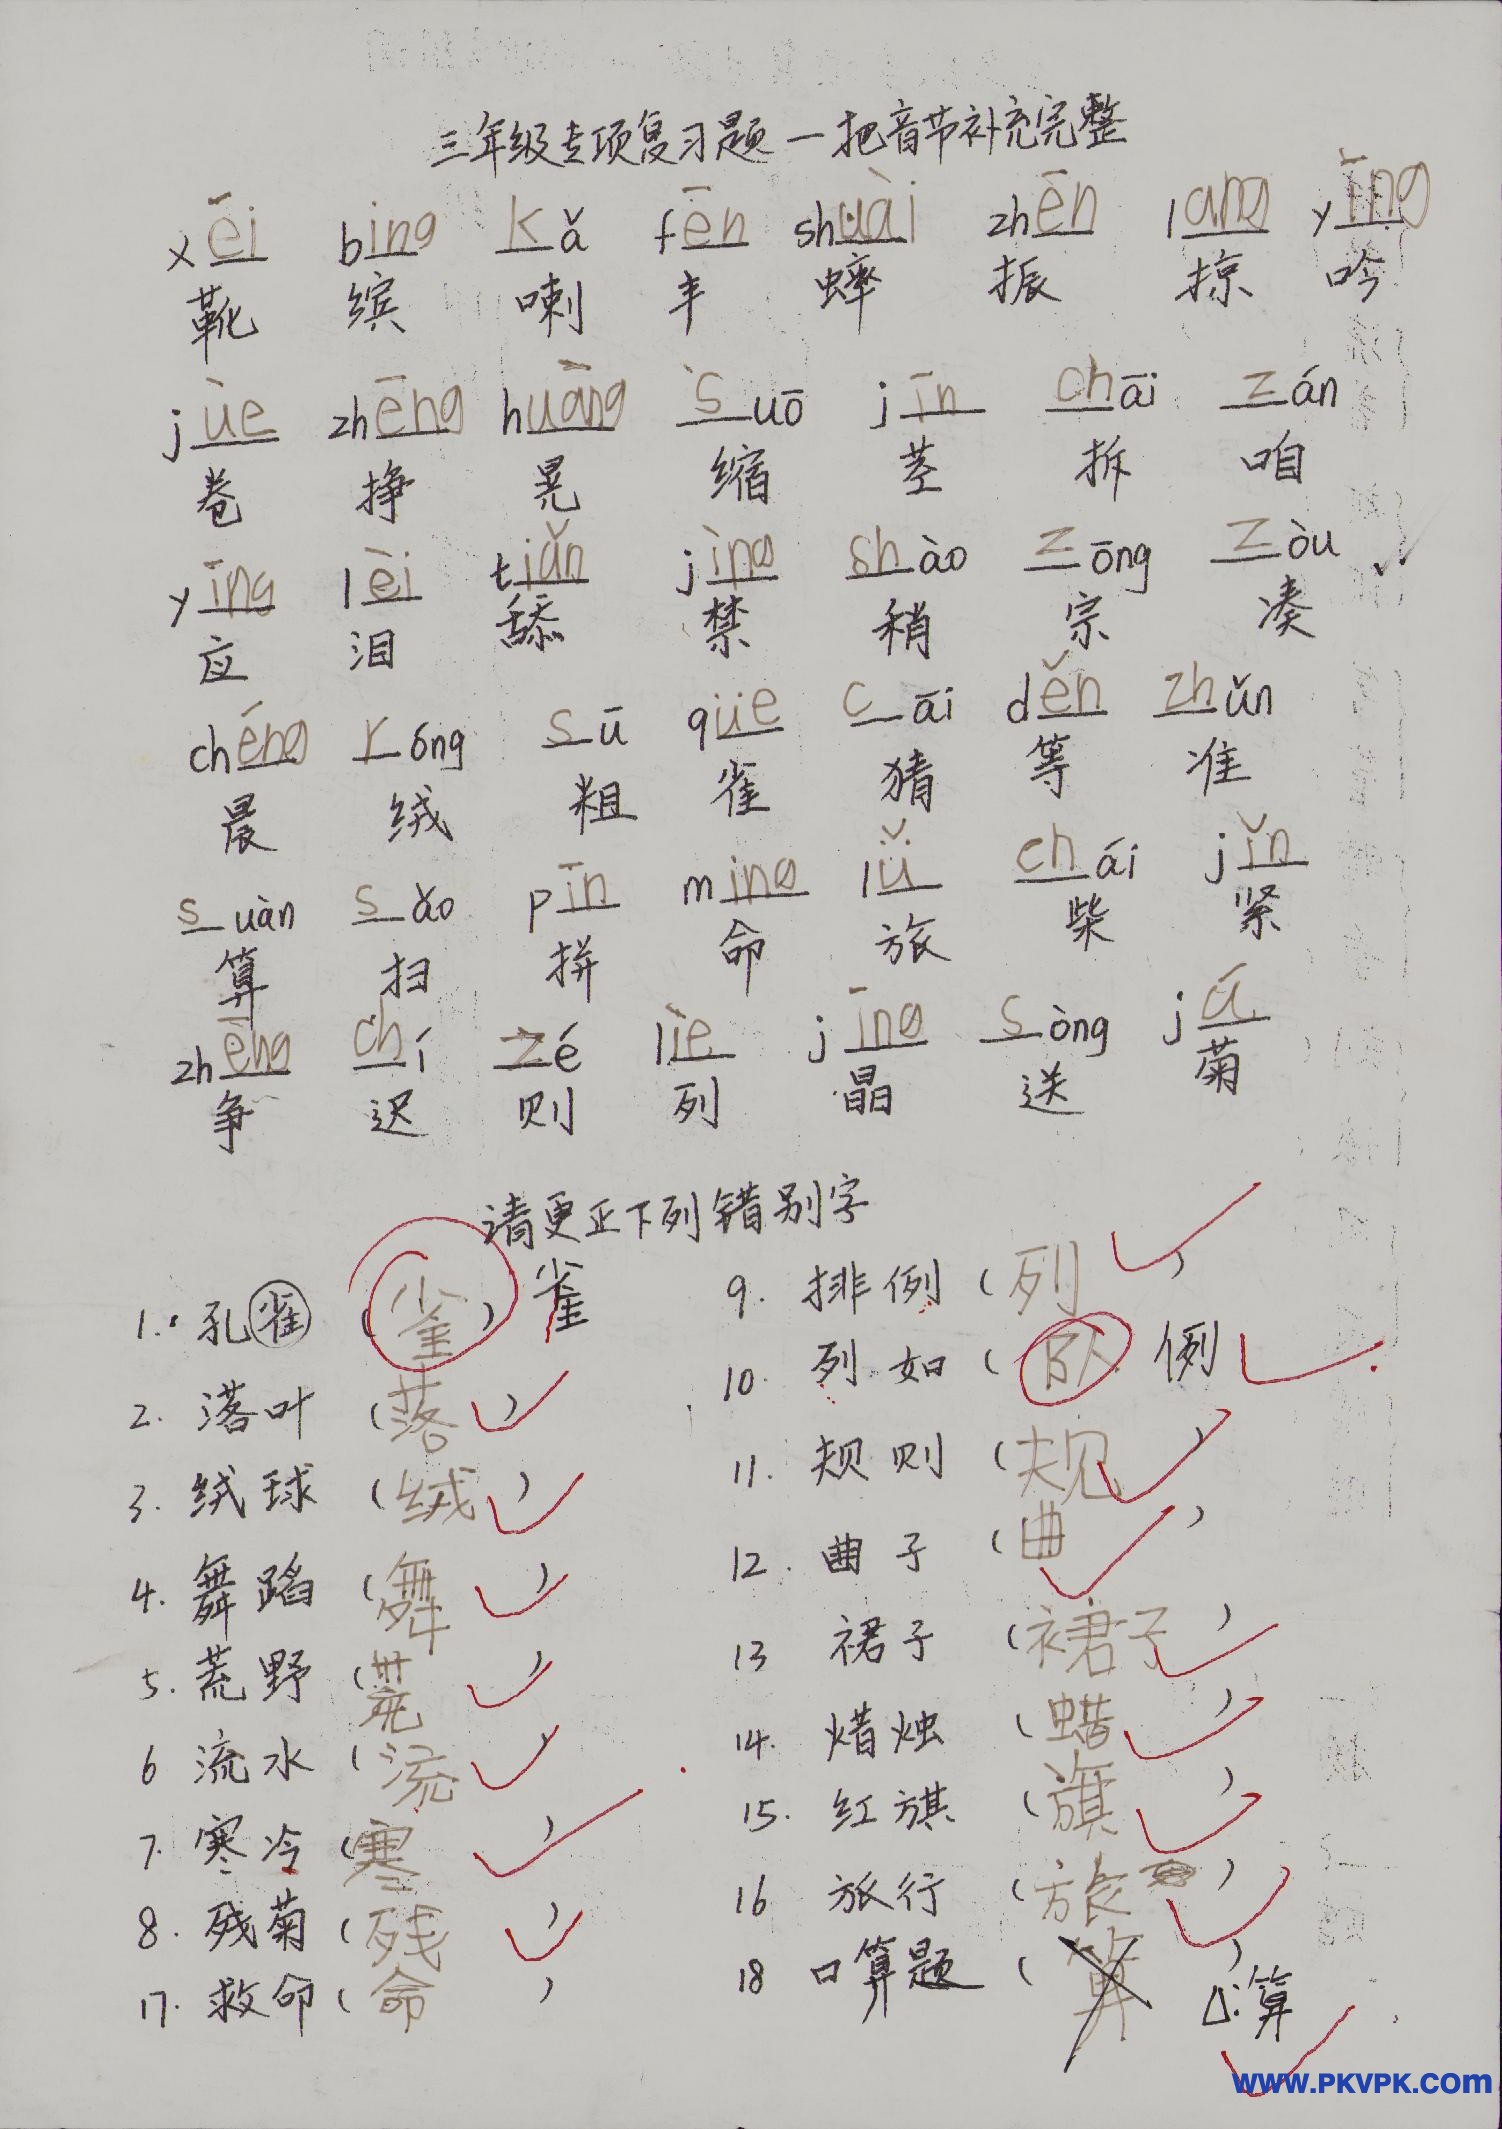 三年级专项复习题一把音节补充完整
xēi bing kǎ fēn shuài zhēn lang yīng
靴 缤 喇 丰 蟀 振 掠 吟
jùe zhēng huàng suō jīn chāi zán
卷 挣 晃 缩 茎 拆 咱
yīng lèi tiǎn jìng shào zōng zòu
应 泪 舔 禁 稍 宗 凑
chéng róng sū qüe cāi děn zhǔn
晨 绒 粗 雀 猜 等 准
suàn sǎo pīn ming lǚ chái jǐn
算 扫 拼 命 旅 柴 紧
zhēng chí zé lìe jīng sòng jū
争 迟 则 列 晶 送 菊
请更正下列错别字
1. 孔雀 (雀) 雀
2. 落叶 (落)
3. 绒球 (绒)
4. 舞蹈 (舞)
5. 荒野 (荒)
6 流水 (流)
7. 寒冷 (寒)
8. 残菊 (残)
17. 救命 (命)
9. 排例 (列)
10. 列如 (队) 例
11. 规则 (规)
12. 曲子 (曲)
13 裙子 (裙子)
14. 焟烛 (蜡)
15. 红旗 (旗)
16 旅行 (旅)
18 口算题 (算) △:算
www.PKVPK.com